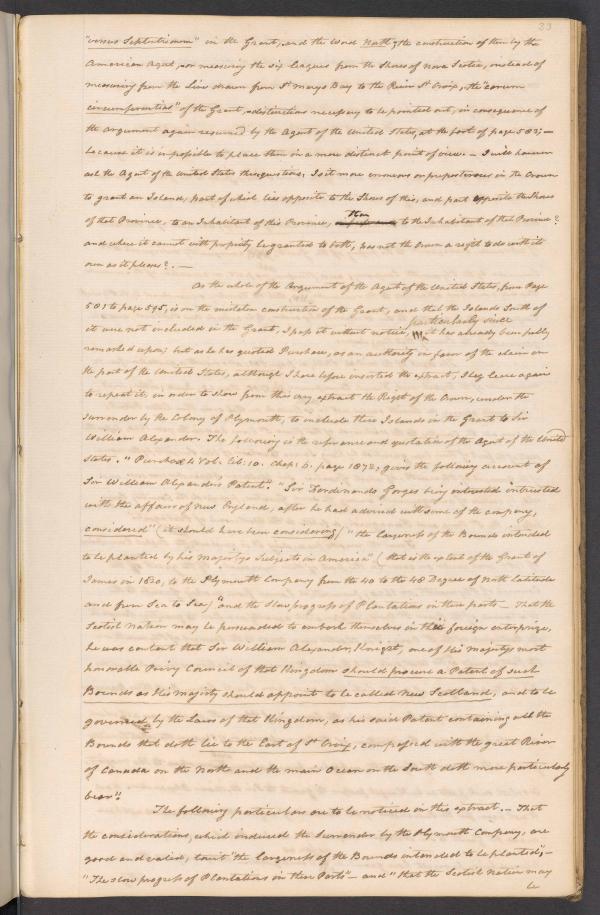 23
"versus Septentrionem" in the Grant, and the Word North, & the construction of them by the
American Agent, nor measuring the six leagues from the Shores of Nova Scotia, instead of
measuring from the Line drawn from St Marys Bay to the River St Croix, the "earum
circumferentias" of the Grant, distinctions necessary to be pointed out, in consequence of
the argument again resumed by the Agent of the United States, at the foot of page 582; —
because it is impossible to place them in a more distinct point of view. — I will however
ask the Agent of the United States these questions; Is it more erroneous or preposterous in the Crown
to grant an Island, part of which lies opposite to the Shores of this, and part opposite the Shores
of that Province, to an Inhabitant of this Province, than to the Inhabitant of that Province?
and where it cannot with propriety be granted to both, has not the Crown a right to do with its
own as it pleases? . —
As the whole of the Argument of the Agent of the United States, from Page
581 to page 595, is on the mistaken construction of the Grant, and that the Islands South of
it are not included in the Grant, I pass it without notice, particularly since it has already been fully
remarked upon; but as he has quoted Purchas, as an authority in favor of the claim on
the part of the United States, although I have before inserted the extract, I beg leave again
to repeat it, in order to shew from this very extract the Right of the Crown, under the
surrender by the Colony of Plymouth, to include these Islands in the Grant to Sir
William Alexander. The following is the reference and quotation of the Agent of the United
States. "Purchas 4 Vol. Lib: 10. Chap: 6. page 1872, gives the following account of
Sir William Alexander's Patent". "Sir Ferdinando Gorges being intrusted
with the affairs of New England, after he had advised with some of the company,
considered" (it should have been considering) "the largeness of the Bounds intended
to be planted by his Majestys Subjects in America" (that is the extent of the Grant of
James in 1620, to the Plymouth Company from the 40 to the 48 Degree of North latitude
and from Sea to Sea) "and the slow progress of Plantations in these parts — That the
Scotish Nation may be persuaded to embark themselves in their foreign enterprize,
he was content that Sir William Alexander, Knight, one of His majestys most
honorable Privy Council of that Kingdom should procure a Patent of such
Bounds as His majesty should appoint to be called New Scotland, and to be
governed by the Laws of that Kingdom, as his said Patent containing all the
Bounds that doth lie to the East of St Croix, compassed with the great River
of Canada on the North and the main Ocean on the South doth more particularly
bear".
The following particulars are to be noticed in this extract. — That
the considerations, which induced the surrender by the Plymouth Company, are
good and valid, towit "the largeness of the Bounds intended to be planted", —
"The slow progress of Plantations in these Parts" — and "that the Scotish Nation may
be